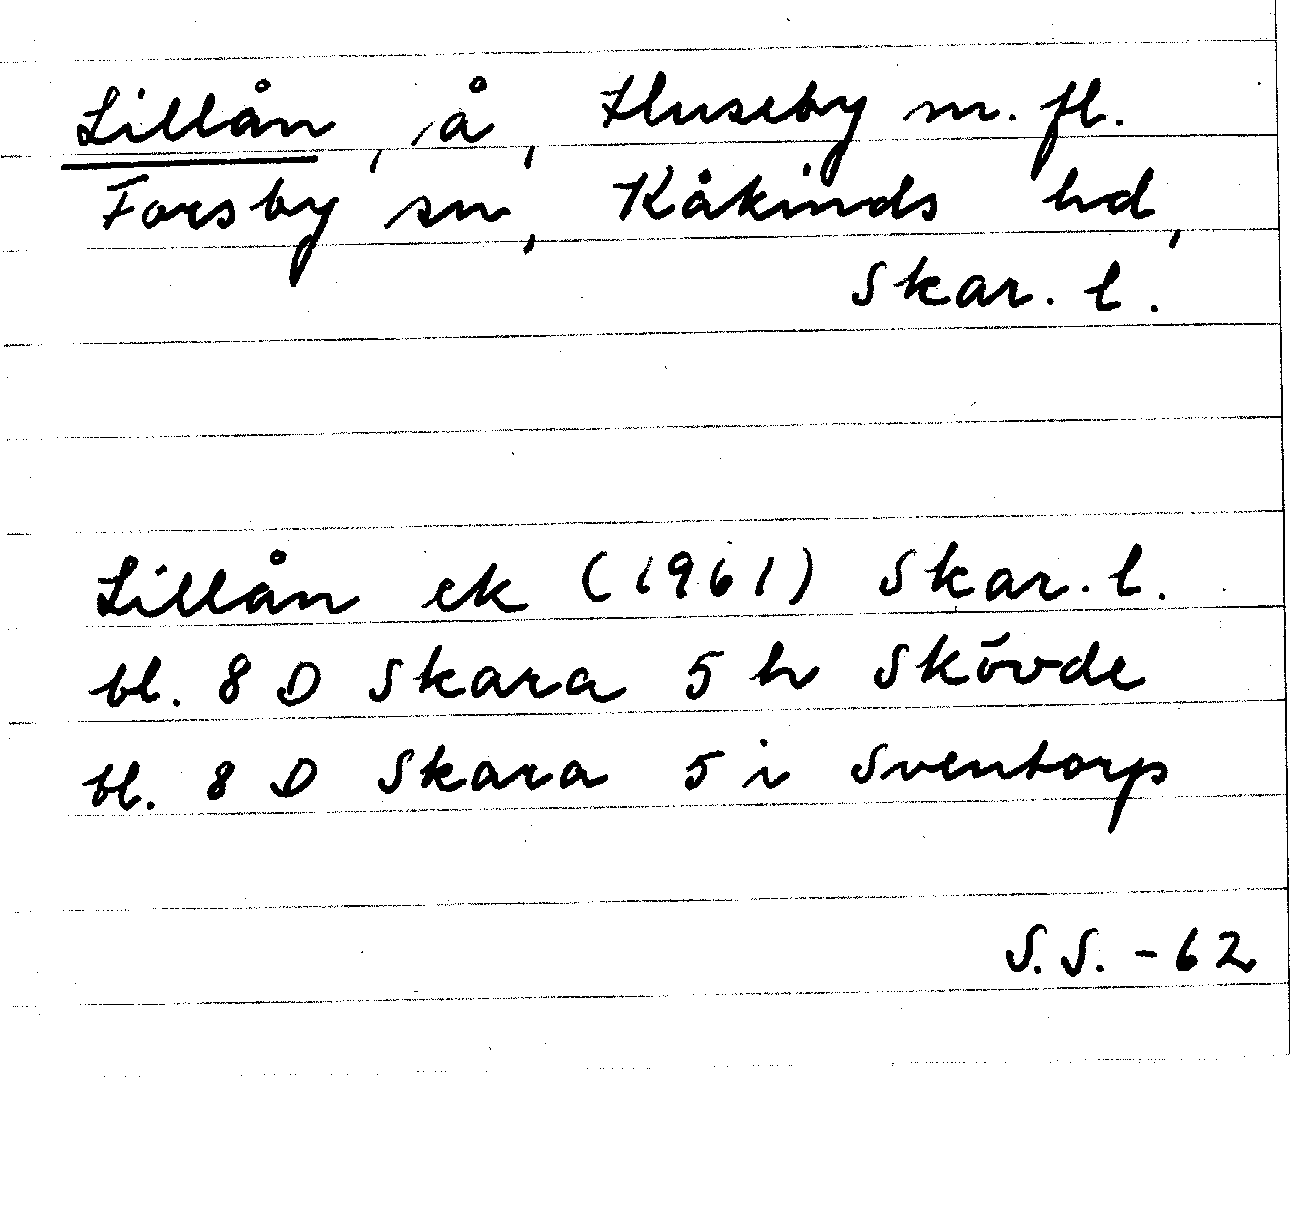 Lillån, å, Huseby m. fl.
Forsby sn, Kåkinds hd,
Skar. l.
Lillån ek (1961) Skar. l.
bl. 8 D Skara 5 h Skövde
bl. 8 D Skara 5 i Sventorp
S.S. -62